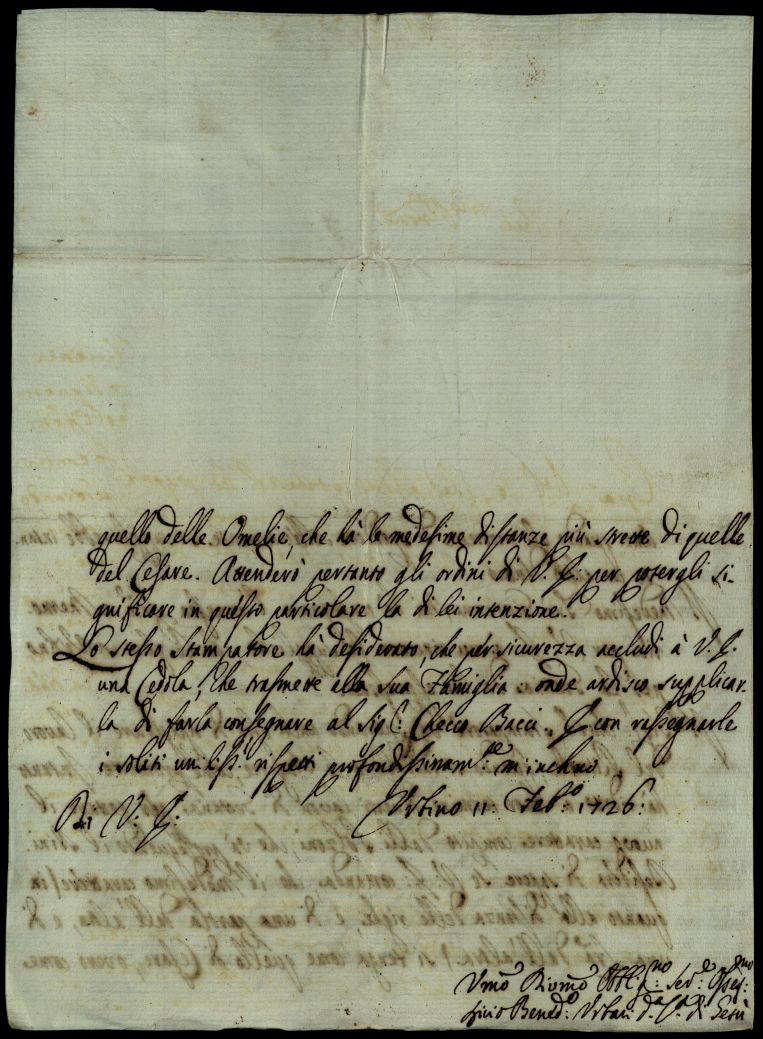 quello delle Omelie, che hà le medesime distanze più strette di quelle
del Cesare. Attenderò pertanto gli ordini di V. S. per potergli si-
gnificare in questo particolare la di lei intenzione.
Lo stesso Stampatore hà desiderato, che per sicurezza accludi à V. S.
una Cedola, che trasmette alla sua Famiglia: onde ardisco supplicar-
la di farla consegnare al Sig.: Checco Bacci. E con rassegnarle
i soliti umiliss.i rispetti profondissimam.te m'inchino
Di V: S: Urbino 11: Feb.o: 1726:
Umo Divmo Obblig.mo: Ser.e Osseq.mo:
Bened.o: Urbani d.a C.a di Gesù